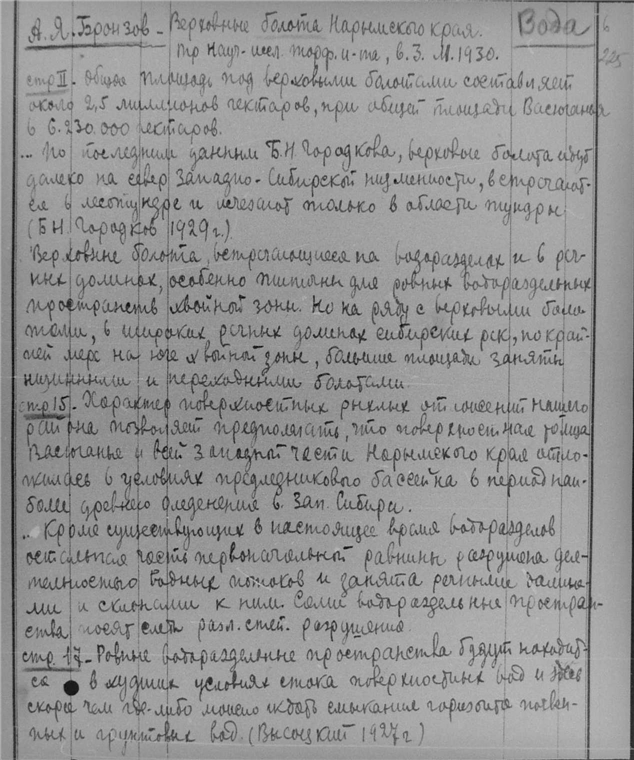 А.Я. Бронзов - Верховные болота Нарымского края. Вода 6
Тр. Науч-иссл. торф. и-та, в. 3. М. 1930. 225
стр II. Общая площадь под верховыми болотами составляет
около 2,5 миллионов гектаров, при общей площади Васюганья
в 6.230.000 гектаров.
... По последним данным Б.Н. Городкова, верховые болота идут
далеко на север Западно-Сибирской низменности, встречают-
ся в лесотундре и исчезают только в области тундры
(Б.Н. Городков 1929 г.).
Верховые болота, встречающиеся на водоразделах и в реч-
ных долинах, особенно типичны для ровных водораздельных
пространств хвойной зоны. Но на ряду с верховыми боло-
тами, в широких речных долинах сибирских рек, по край-
ней мере на юге хвойной зоны, большие площади заняты
низинными и переходными болотами.
стр 15. Характер поверхностных рыхлых отложений нашего
района позволяет предполагать, что поверхностная толща
Васюганья и всей Западной части Нарымского края отло-
жилась в условиях предледникового бассейна в период наи-
более древнего оледенения в Зап. Сибири.
... Кроме существующих в настоящее время водоразделов
остальная часть первоначальной равнины разрушена дея-
тельностью водных потоков и занята речными долина-
ми и склонами к ним. Сами водораздельные простран-
ства носят следы разл. степ. разрушения
стр. 17 - Ровные водораздельные пространства будут находит-
ся в худших условиях стока поверхностных вод и здесь
скорее чем где-либо можно ждать смыкания горизонта почвен-
ных и грунтовых вод. (Высоцкий 1927 г)